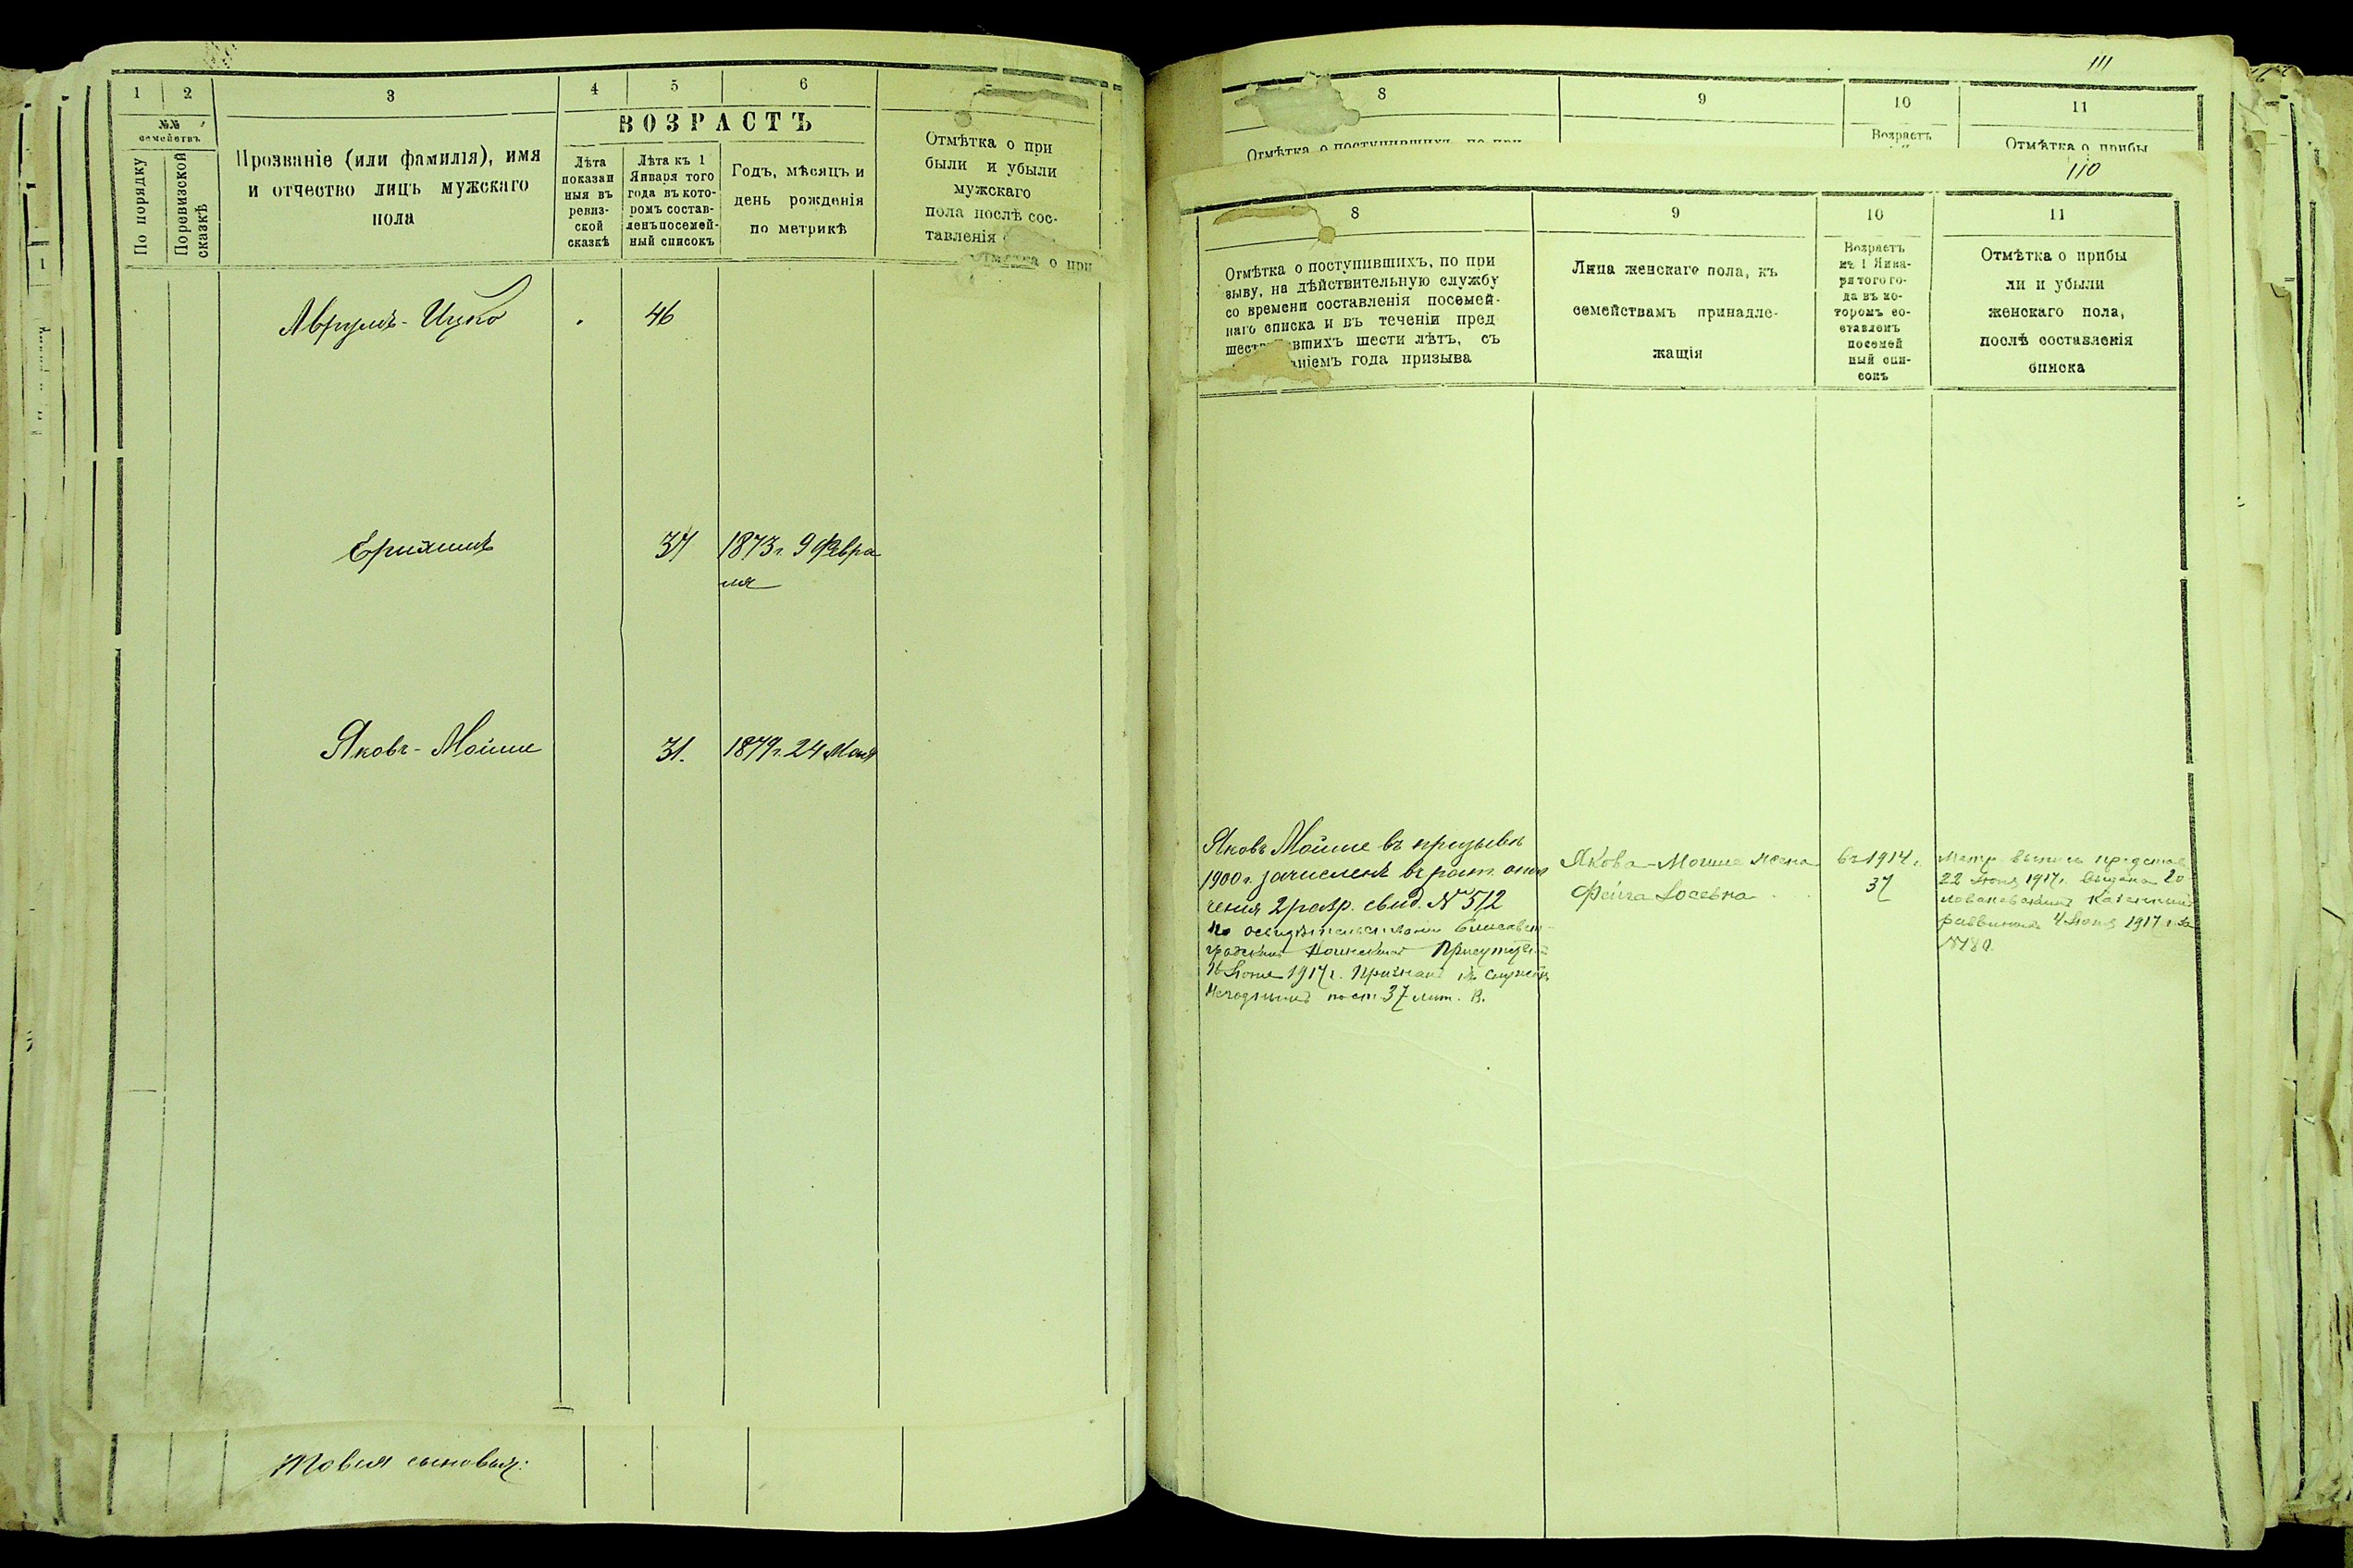 1 2 3 4 5 6
№№ семействъ
По порядку
По ревизской сказкѣ
Прозваніе (или фамилія), имя
и отчество лицъ мужскаго
пола
ВОЗРАСТЪ
Лѣта
показан
ныя въ
ревиз-
ской
сказкѣ
Лѣта къ 1
Января того
года въ кото-
ромъ состав-
ленъ посемей-
ный списокъ
Годъ, мѣсяцъ и
день рожденія
по метрикѣ
Отмѣтка о при
были и убыли
мужскаго
пола послѣ сос-
тавленія
Отмѣтка о при
Аврумъ-Ицко 46
37 1873 г. 9 Февра
ля
Яковъ-Мойше 31. 1879 г. 24 Мая
Товия сыновья:
111
8 9 10 11
Отмѣтка о поступившихъ, по при
Возрастъ
Отмѣтка о прибы
110
8 9 10 11
Отмѣтка о поступившихъ, по при
зыву, на дѣйствительную службу
со времени составленія посемей-
наго списка и въ теченіи пред
шест вшихъ шести лѣтъ, съ
аніемъ года призыва
Лица женскаго пола, къ
семействамъ принадле-
жащія
Возрастъ
къ 1 Янва-
ря того го-
да въ ко-
торомъ со-
ставленъ
посемей
ный спи-
сокъ
Отмѣтка о прибы
ли и убыли
женскаго пола,
послѣ составленія
списка
Яковъ Мойше въ призывъ
1900 г. зачисленъ въ рат. опол
ченія 2 разр. свид. № 572
По освидѣтельствованіи Елисавет-
градскимъ Воинскимъ Присутствіе
16 Іюня 1917 г. Признанъ къ службѣ
Негоднымъ по ст. 37 лит. В.
Якова-Мошие жена
Фейга Іосевна
въ 1914 г.
37
Метр. выпись представ
22 Іюня 1917 г. выдана Го
лованевскимъ Казенным
раввиномъ 4 Іюня 1917 г. за
№ 180.